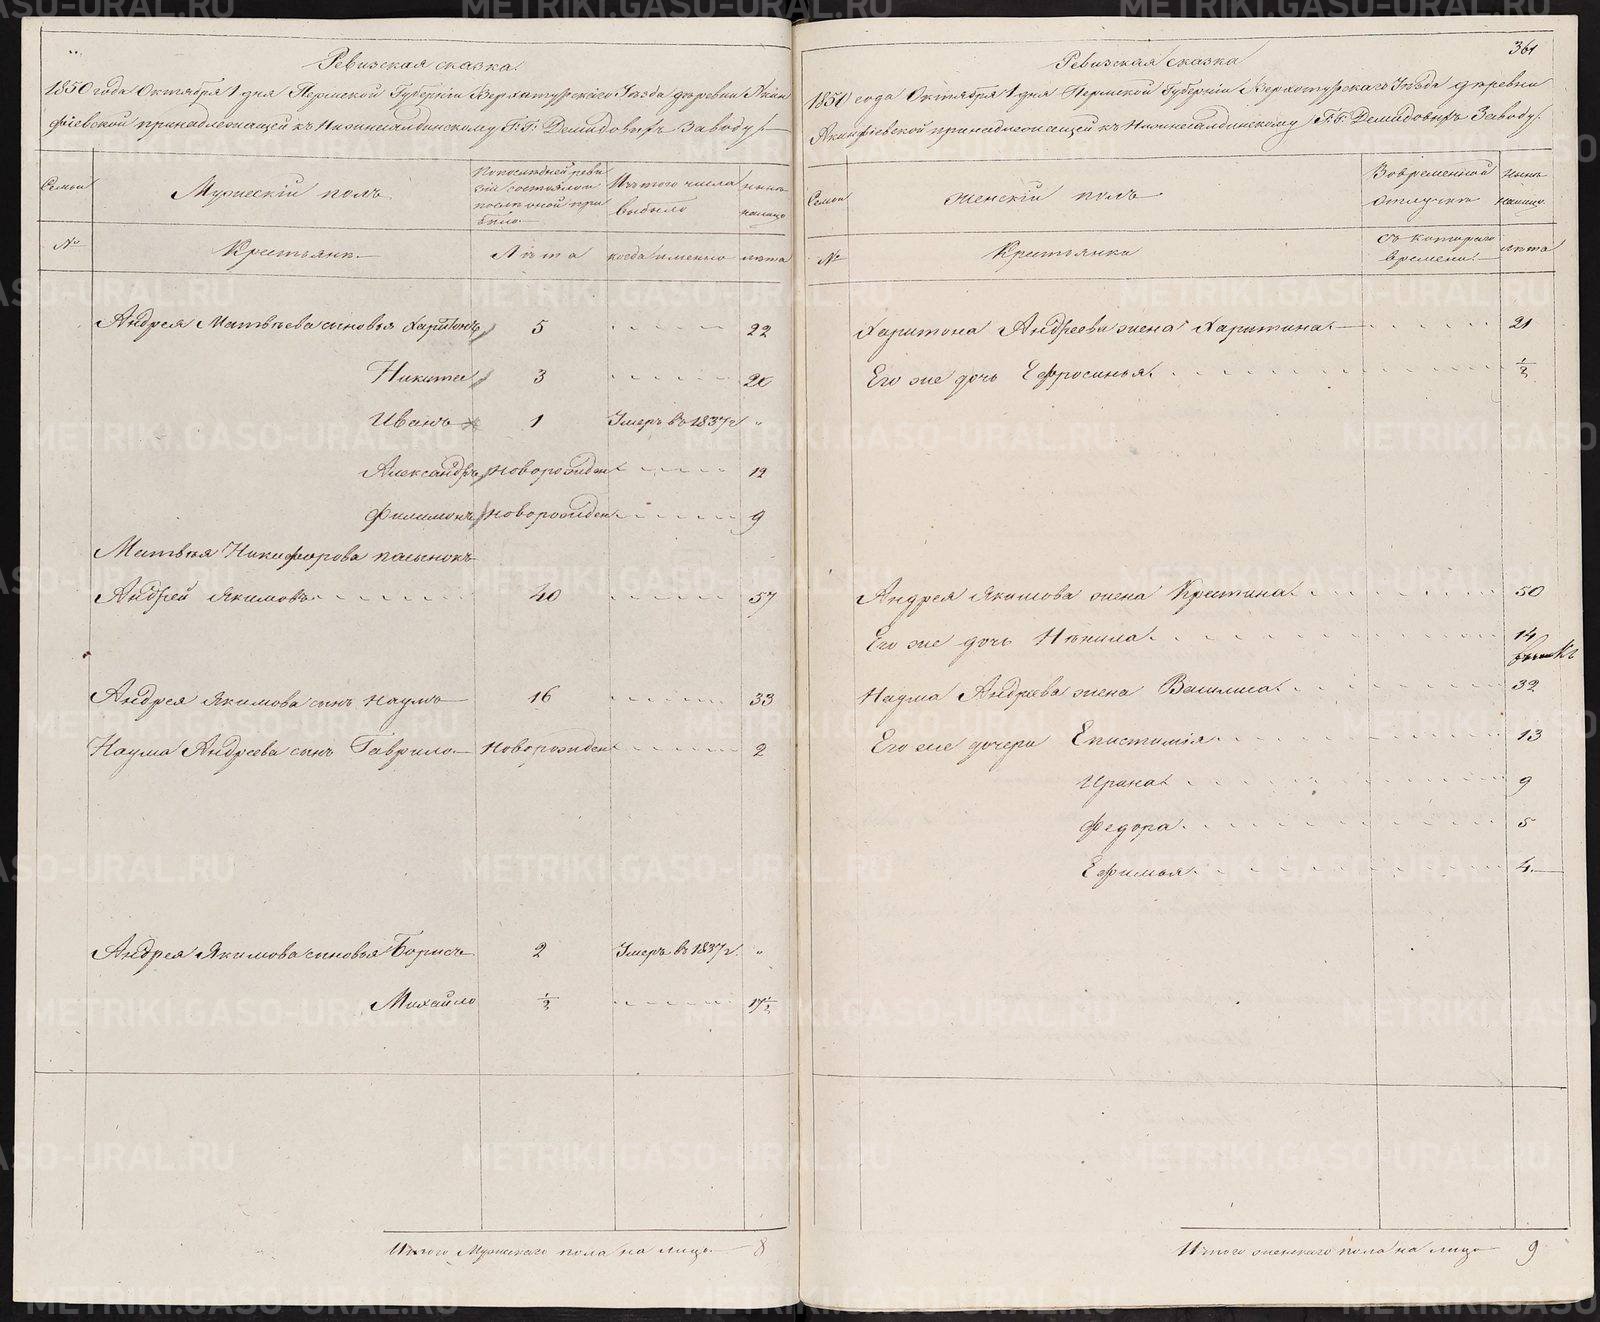 Ревизская сказка.
1850 года Октября 1 дня Пермской Губерніи Верхотурскаго Уѣзда деревни Акин
фіевской принадлежащей къ Нижнесалдинскому Г.Г. Демидовыхъ Заводу
Семьи
Мужескій полъ
По послѣдней реви
зіи состояло и
послѣ оной при
было
Изъ того числа
выбыло
нынѣ
налицо
№
Крестьяне
Лѣта
когда именно
лѣта
Андрея Матвѣева сыновья Харитонъ 5 22
Никита 3 20
Иванъ 1 Умеръ въ 1837 г. "
Александръ новорожден 12
Филимонъ новорожден 9
Матвѣя Никифорова пасынокъ
Андрей Якимовъ 40 57
Андрея Якимова сынъ Наумъ 16 33
Наума Андреева сынъ Гаврило новорожден 2
Андрея Якимова сыновья Борисъ 2 Умеръ въ 1837 г. "
Михайло ½ 17½
Итого Мужескаго пола на лицо 8
361
Ревизская сказка
1850 года Октября 1 дня Пермской Губерніи Верхотурскаго Уѣзда деревни
Акинфіевской принадлежащей къ Нижнесалдинскому Г.Г. Демидовыхъ Заводу.
Семьи
Женскій полъ
Во временной
отлучкѣ
нынѣ
налицо
№
Крестьянки
съ котораго
времени
лѣта
Харитона Андреева жена Харитина 21
Его же дочь Ефросинья ½
Андрея Якимова жена Крестина 50
Его же дочь Нѣнила 14
Наума Андреева жена Василиса 32
Его же дочери Епистимія 13
Ирина 9
Федора 5
Ефимья 4
Итого женскаго пола на лицо 9
METRIKI.GASO-URAL.RU